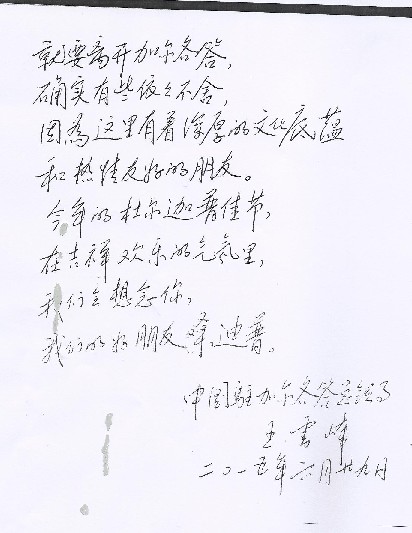 就要离开加尔各答，
确实有些依々不舍，
因為这里有着深厚的文化底蕴
和热情友好的朋友。
今年的杜尔迦普佳节，
在吉祥欢乐的气氛里，
我们会想念你，
我们的好朋友 迪普。
中国駐加尔各答总领事
王雪峰
二〇一五年六月廿九日